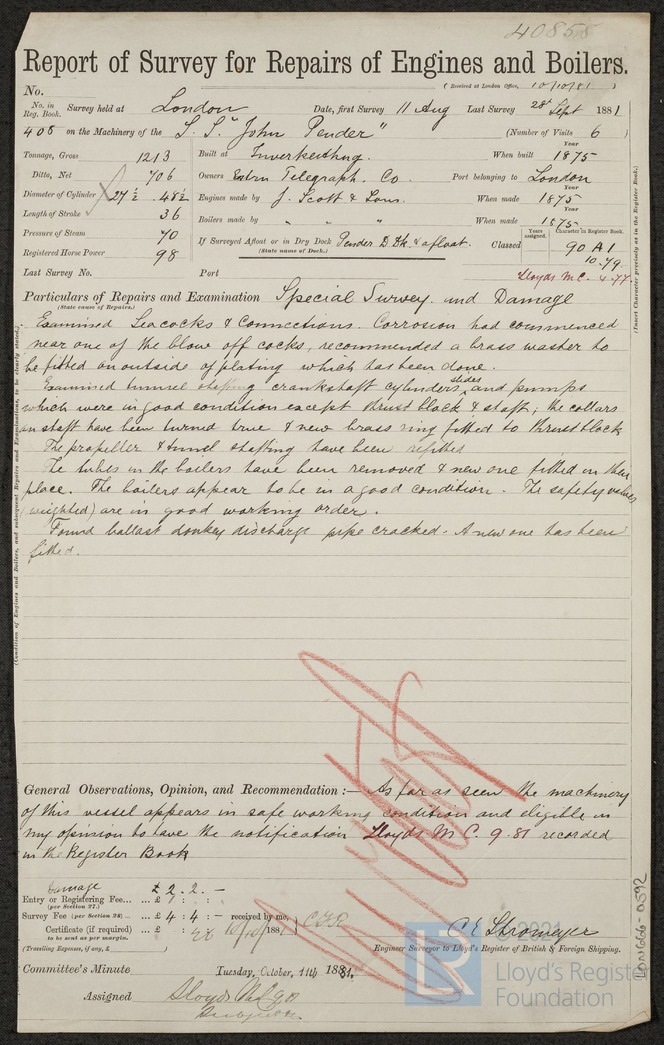 40858
Report of Survey for Repairs of Engines and Boilers.
(Received at London Office, 10/10/81)
No.
No. in Reg. Book. Survey held at London Date, first Survey 11 Aug Last Survey 28th Sept 1881
408 on the Machinery of the S.S. "John Pender" (Number of Visits 6)
Tonnage, Gross 1213
Ditto, Net 706
Diameter of Cylinder 27½ . 48½
Length of Stroke 36
Pressure of Steam 70
Registered Horse Power 98
Built at Inverkeithing. When built Year 1875
Owners Estrn Telegraph. Co. Port belonging to London
Engines made by J. Scott & Sons. When made Year 1875
Boilers made by " " " When made Year 1875
If Surveyed Afloat or in Dry Dock Pender D Dk. & afloat.
(State name of Dock.)
Classed Years assigned. Character in Register Book. 90 A1
10.79.
Lloyds M.C. 4.77.
Last Survey No. Port
Particulars of Repairs and Examination Special Survey and Damage
(State cause of Repairs.)
Examined Seacocks & Connections. Corrosion had commenced
near one of the blow off cocks, recommended a brass washer to
be fitted on outside of plating which has been done.
Examined tunnel shafting crankshaft cylinders slides and pumps
which were in good condition except thrust block & shaft; the collars
on shaft have been turned true & new brass ring fitted to thrust block
The propeller & tunnel shafting have been refitted
The tubes in the boilers have been removed & new one fitted in their
place. The boilers appear to be in a good condition. The safety valves
(weighted) are in good working order.
Found ballast donkey discharge pipe cracked. A new one has been
fitted.
General Observations, Opinion, and Recommendation :— As far as seen the machinery
of this vessel appears in safe working condition and eligible in
my opinion to have the notification Lloyds M C. 9.81 recorded
in the Register Book
Damage £ 2.2.-
Entry or Registering Fee... ... £ : :
(per Section 27.)
Survey Fee (per Section 28) ... £ 4 : 4 : - received by me,
Certificate (if required) ... £ : : 188
to be sent as per margin.
(Travelling Expenses, if any, £ )
C E Stromeyer
Engineer Surveyor to Lloyd's Register of British & Foreign Shipping.
Committee's Minute Tuesday, October, 11th 1881.
Assigned Lloyds M.C. 9.81
(Insert Character precisely as in the Register Book.)
(Condition of Engines and Boilers, and subsequent Repairs and Examinations, to be clearly stated.)
© 2021
LR
Lloyd's Register
Foundation